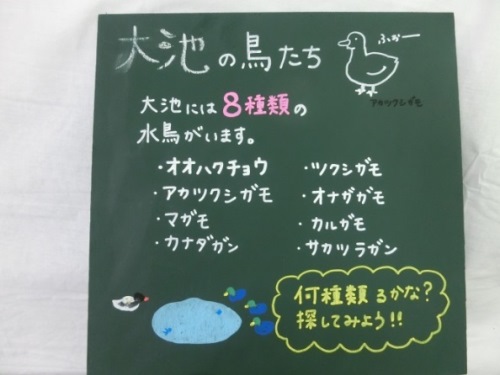 大池の鳥たち
ふぉー
アカツクシガモ
大池には8種類の
水鳥がいます。
・オオハクチョウ
・アカツクシガモ
・マガモ
・カナダガン
・ツクシガモ
・オナガガモ
・カルガモ
・サカツラガン
何種類るかな?
探してみよう!!